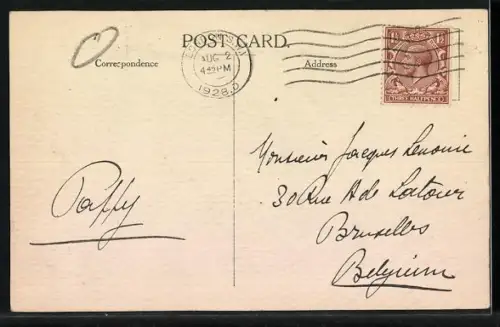 POST CARD.
Correspondence
Address
AUG 2
4 PM
1928.D
THREE HALFPENCE
Paffy
Monsieur Jacques Lenoir
30 Rue A de Latour
Bruxelles
Belgium